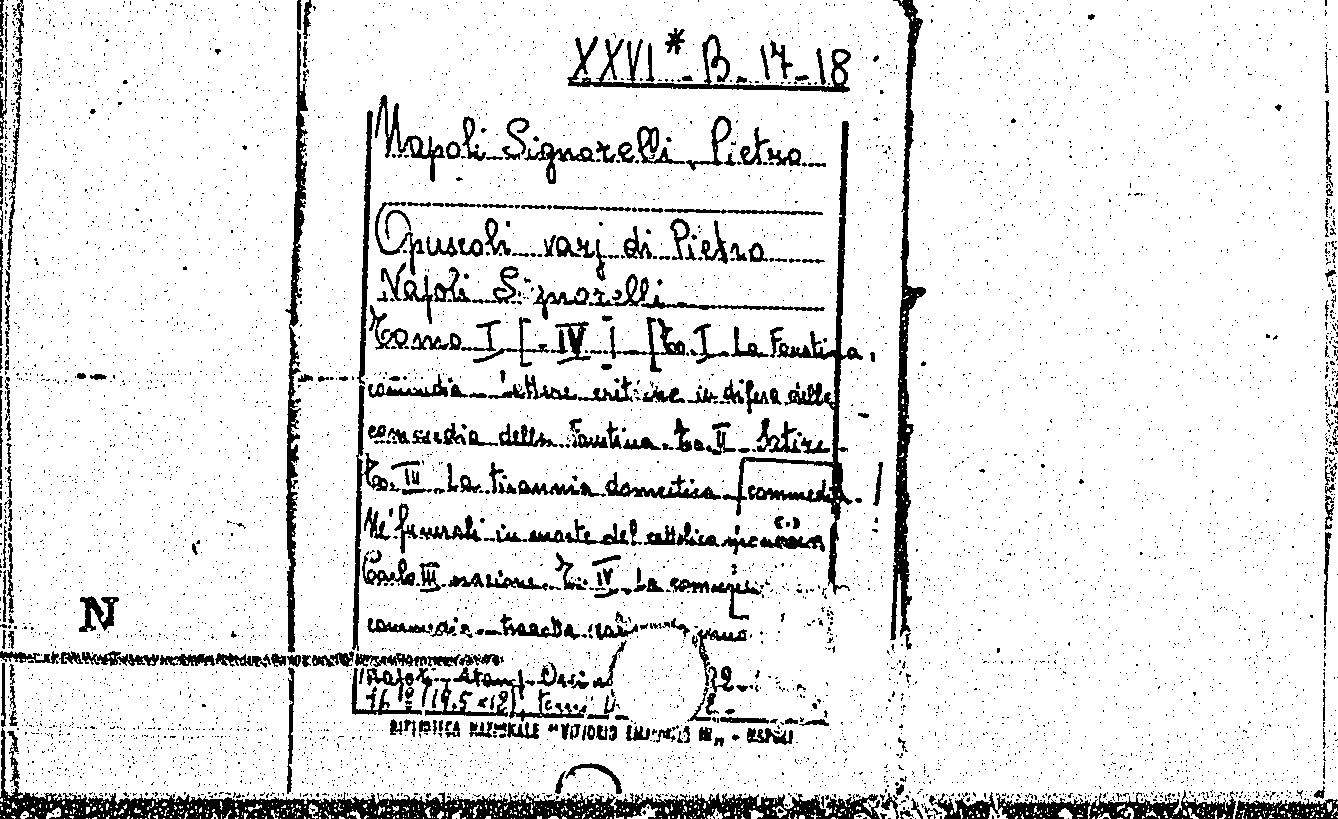 XXVI* B. 17-18
Napoli Signorelli, Pietro
Opuscoli varj di Pietro
Napoli Signorelli
Tomo I [-IV] [To. I La Faustina.
commedia. Lettere critiche in difesa della
commedia della Faustina. To. II Satire
To. III La tirannia domestica [commedia.
Ne' funerali in morte del cattolico (.)
Carlo III orazione. T. IV La
commedia tradotta
Napoli Stamp. Orsin
(19.5×12)
BIBLIOTECA NAZIONALE "VITTORIO EMANUELE III" - NAPOLI
N